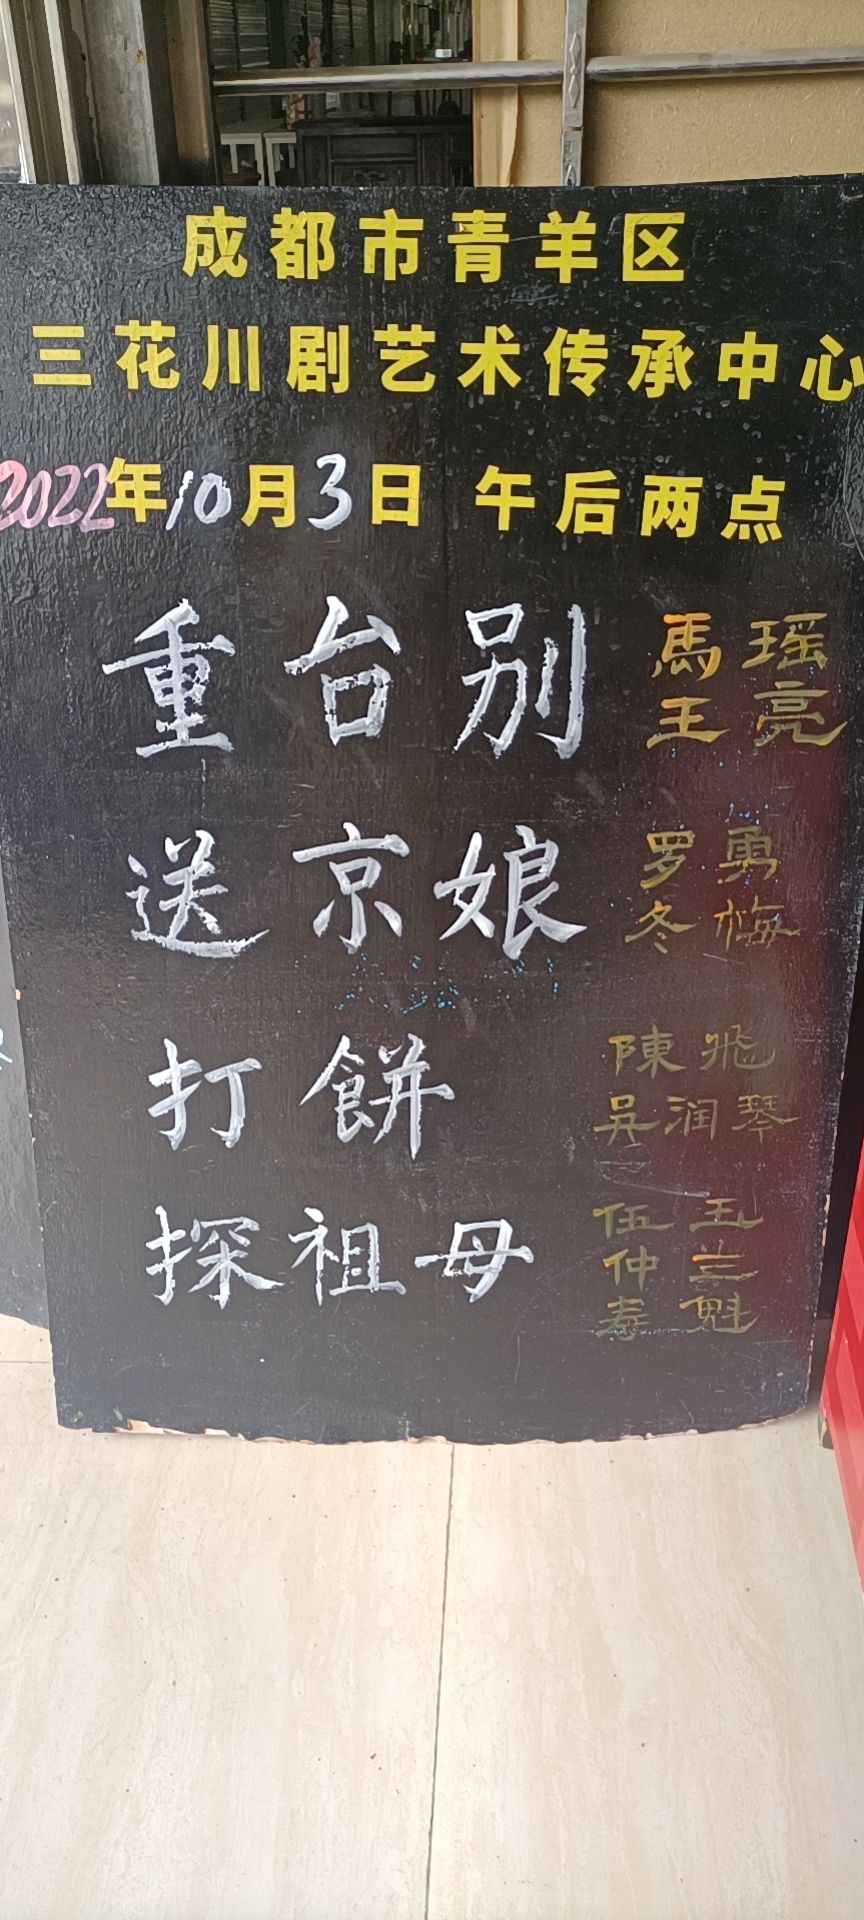 成都市青羊区
三花川剧艺术传承中心
2022年10月3日 午后两点
重台别 馬瑶
王亮
送京娘 罗勇
冬梅
打餅 陳飛
吴润琴
探祖母 伍玉
仲兰
泰魁